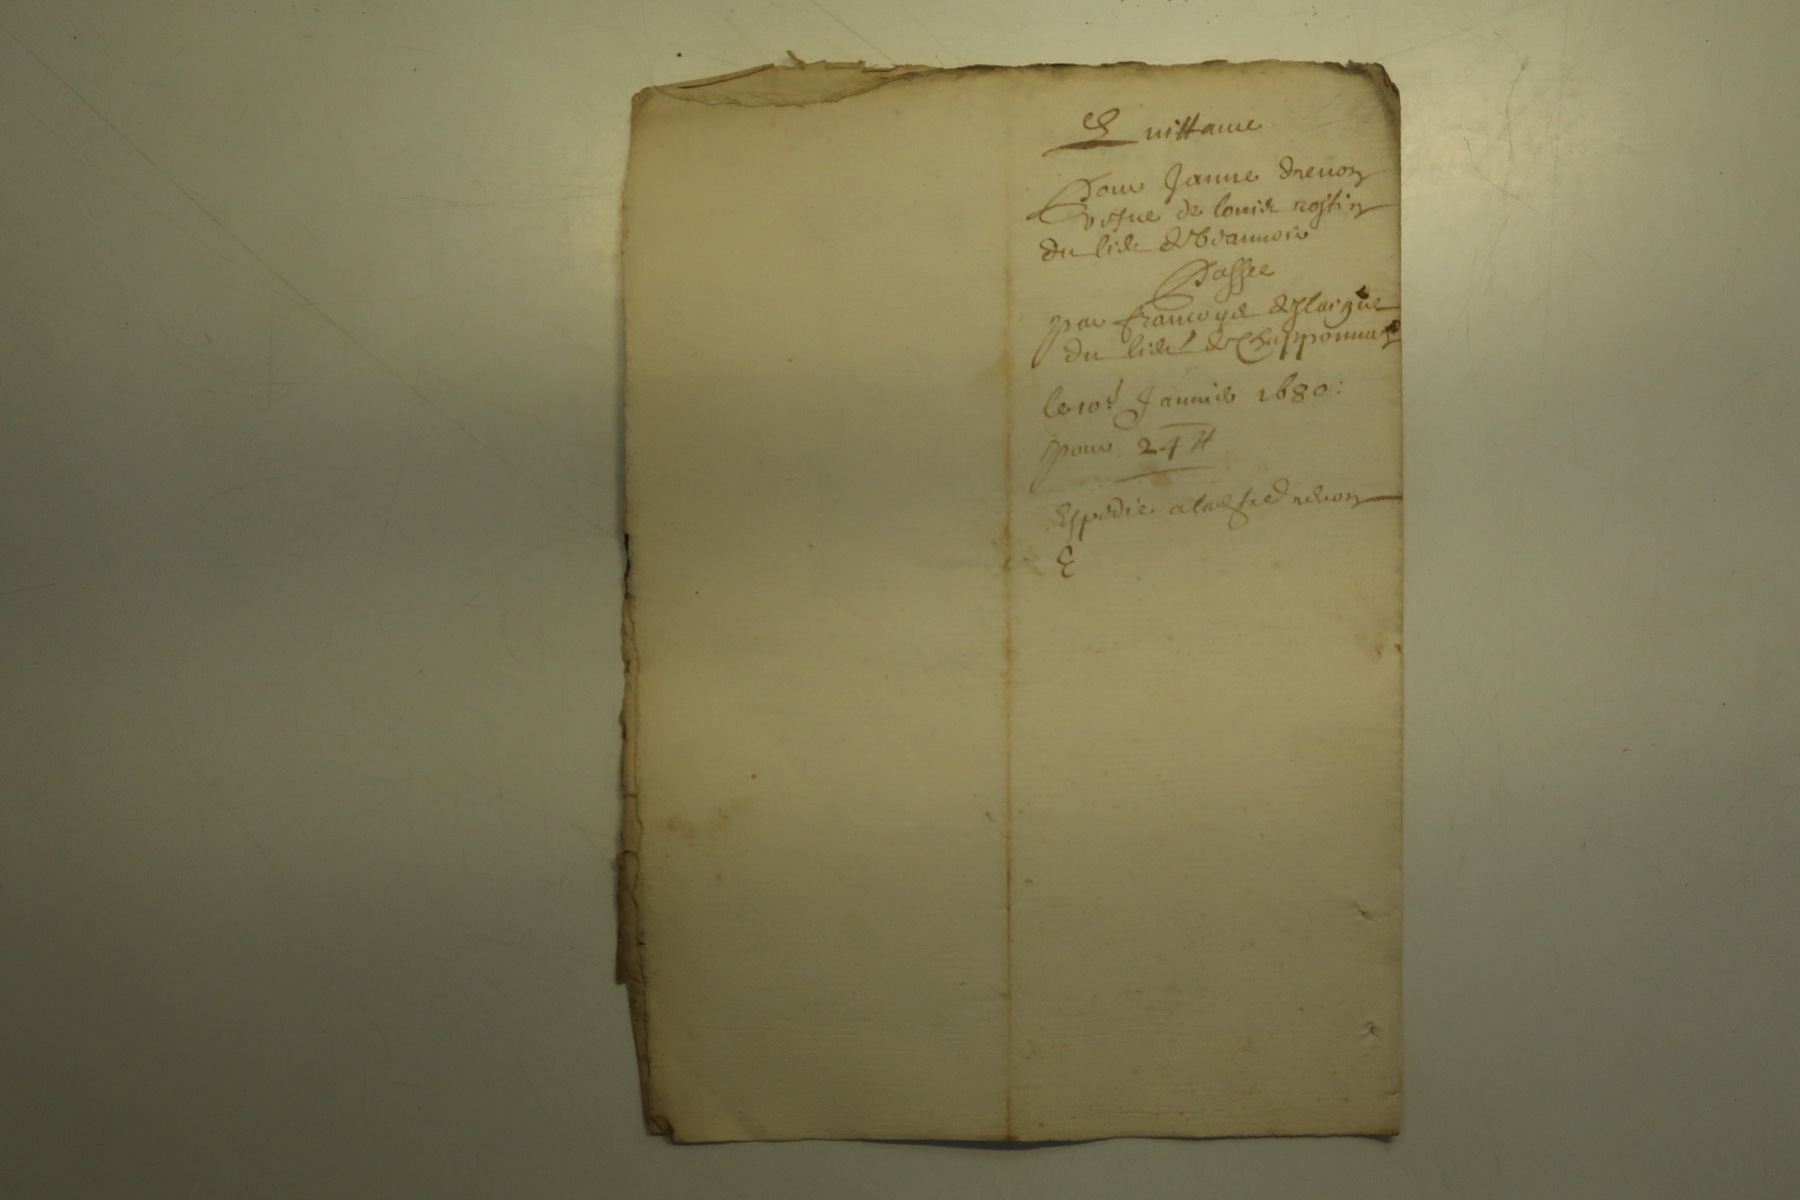 Quittance
Pour Janne drevon
vefue de louis rostin
du lieu de beauuoir
Passee
par francoyse
du lieu de Chapponnay
le 10e Januier 1680:
pour 24 ₶
Expedié a lad drevon